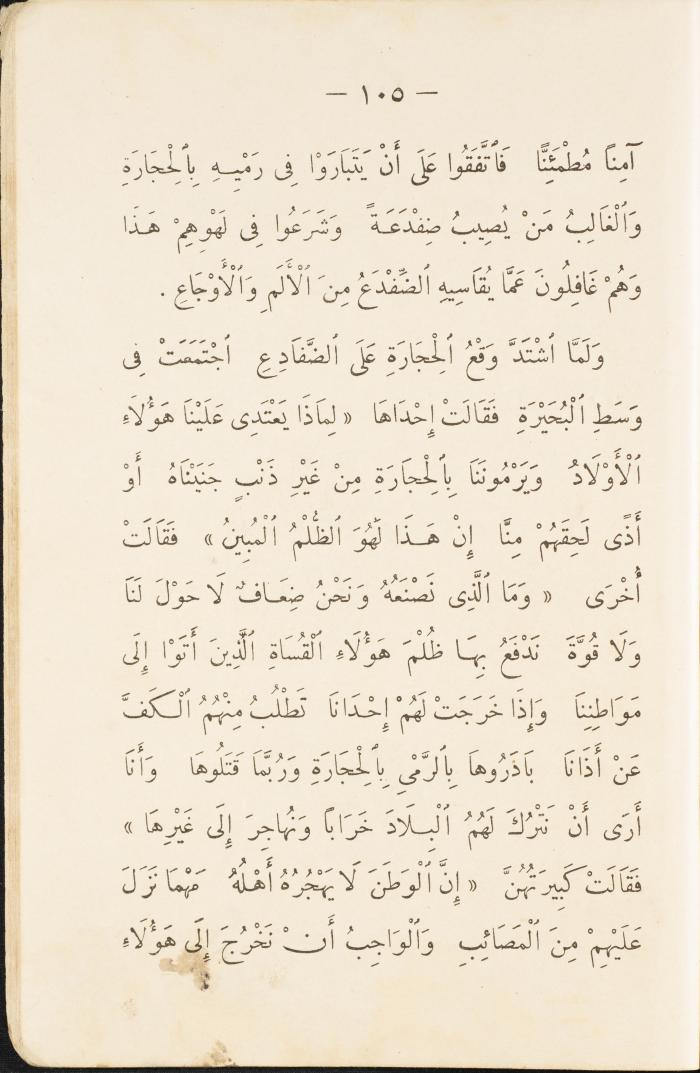 — ١٠٥ —
آمِنًا مُطْمَئِنًّا فَٱتَّفَقُوا عَلَى أَنْ يَتَبَارَوْا فِى رَمْيِهِ بِٱلْحِجَارَةِ
وَٱلْغَالِبُ مَنْ يُصِيبُ ضِفْدَعَةً وَشَرَعُوا فِى لَهْوِهِمْ هَذَا
وَهُمْ غَافِلُونَ عَمَّا يُقَاسِيهِ ٱلضِّفْدَعُ مِنَ ٱلْأَلَمِ وَٱلْأَوْجَاعِ .
وَلَمَّا ٱشْتَدَّ وَقْعُ ٱلْحِجَارَةِ عَلَى ٱلضَّفَادِعِ ٱجْتَمَعَتْ فِى
وَسَطِ ٱلْبُحَيْرَةِ فَقَالَتْ إِحْدَاهَا « لِمَاذَا يَعْتَدِى عَلَيْنَا هَؤُلَاءِ
ٱلْأَوْلَادُ وَيَرْمُونَنَا بِٱلْحِجَارَةِ مِنْ غَيْرِ ذَنْبٍ جَنَيْنَاهُ أَوْ
أَذًى لَحِقَهُمْ مِنَّا إِنْ هَذَا لَهُوَ ٱلظُّلْمُ ٱلْمُبِينُ » فَقَالَتْ
أُخْرَى « وَمَا ٱلَّذِى نَصْنَعُهُ وَنَحْنُ ضِعَافٌ لَا حَوْلَ لَنَا
وَلَا قُوَّةَ نَدْفَعُ بِهَا ظُلْمَ هَؤُلَاءِ ٱلْقُسَاةِ ٱلَّذِينَ أَتَوْا إِلَى
مَوَاطِنِنَا وَإِذَا خَرَجَتْ لَهُمْ إِحْدَانَا تَطْلُبُ مِنْهُمُ ٱلْكَفَّ
عَنْ أَذَانَا بَادَرُوهَا بِٱلرَّمْىِ بِٱلْحِجَارَةِ وَرُبَّمَا قَتَلُوهَا وَأَنَا
أَرَى أَنْ نَتْرُكَ لَهُمُ ٱلْبِلَادَ خَرَابًا وَنُهَاجِرَ إِلَى غَيْرِهَا »
فَقَالَتْ كَبِيرَتُهُنَّ « إِنَّ ٱلْوَطَنَ لَا يَهْجُرُهُ أَهْلُهُ مَهْمَا نَزَلَ
عَلَيْهِمْ مِنَ ٱلْمَصَائِبِ وَٱلْوَاجِبُ أَنْ نَخْرُجَ إِلَى هَؤُلَاءِ